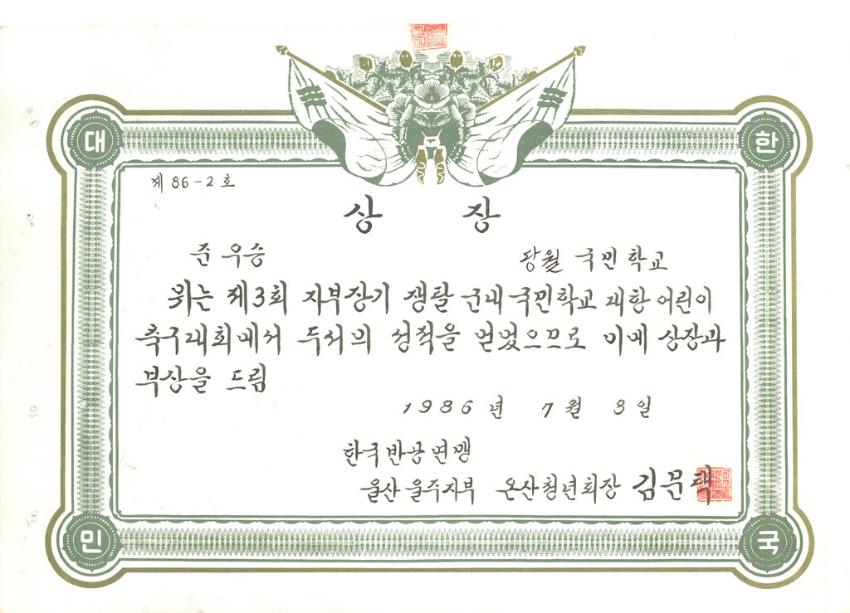 대 한
제 86-2 호
상 장
준 우승
당월 국민학교
위는 제3회 지부장기 쟁탈 군내 국민학교 대항 어린이
축구대회에서 두서의 성적을 얻었으므로 이에 상장과
부상을 드림
1986 년 7 월 8 일
한국반공연맹
울산 울주지부 온산청년회장 김문택
민 국